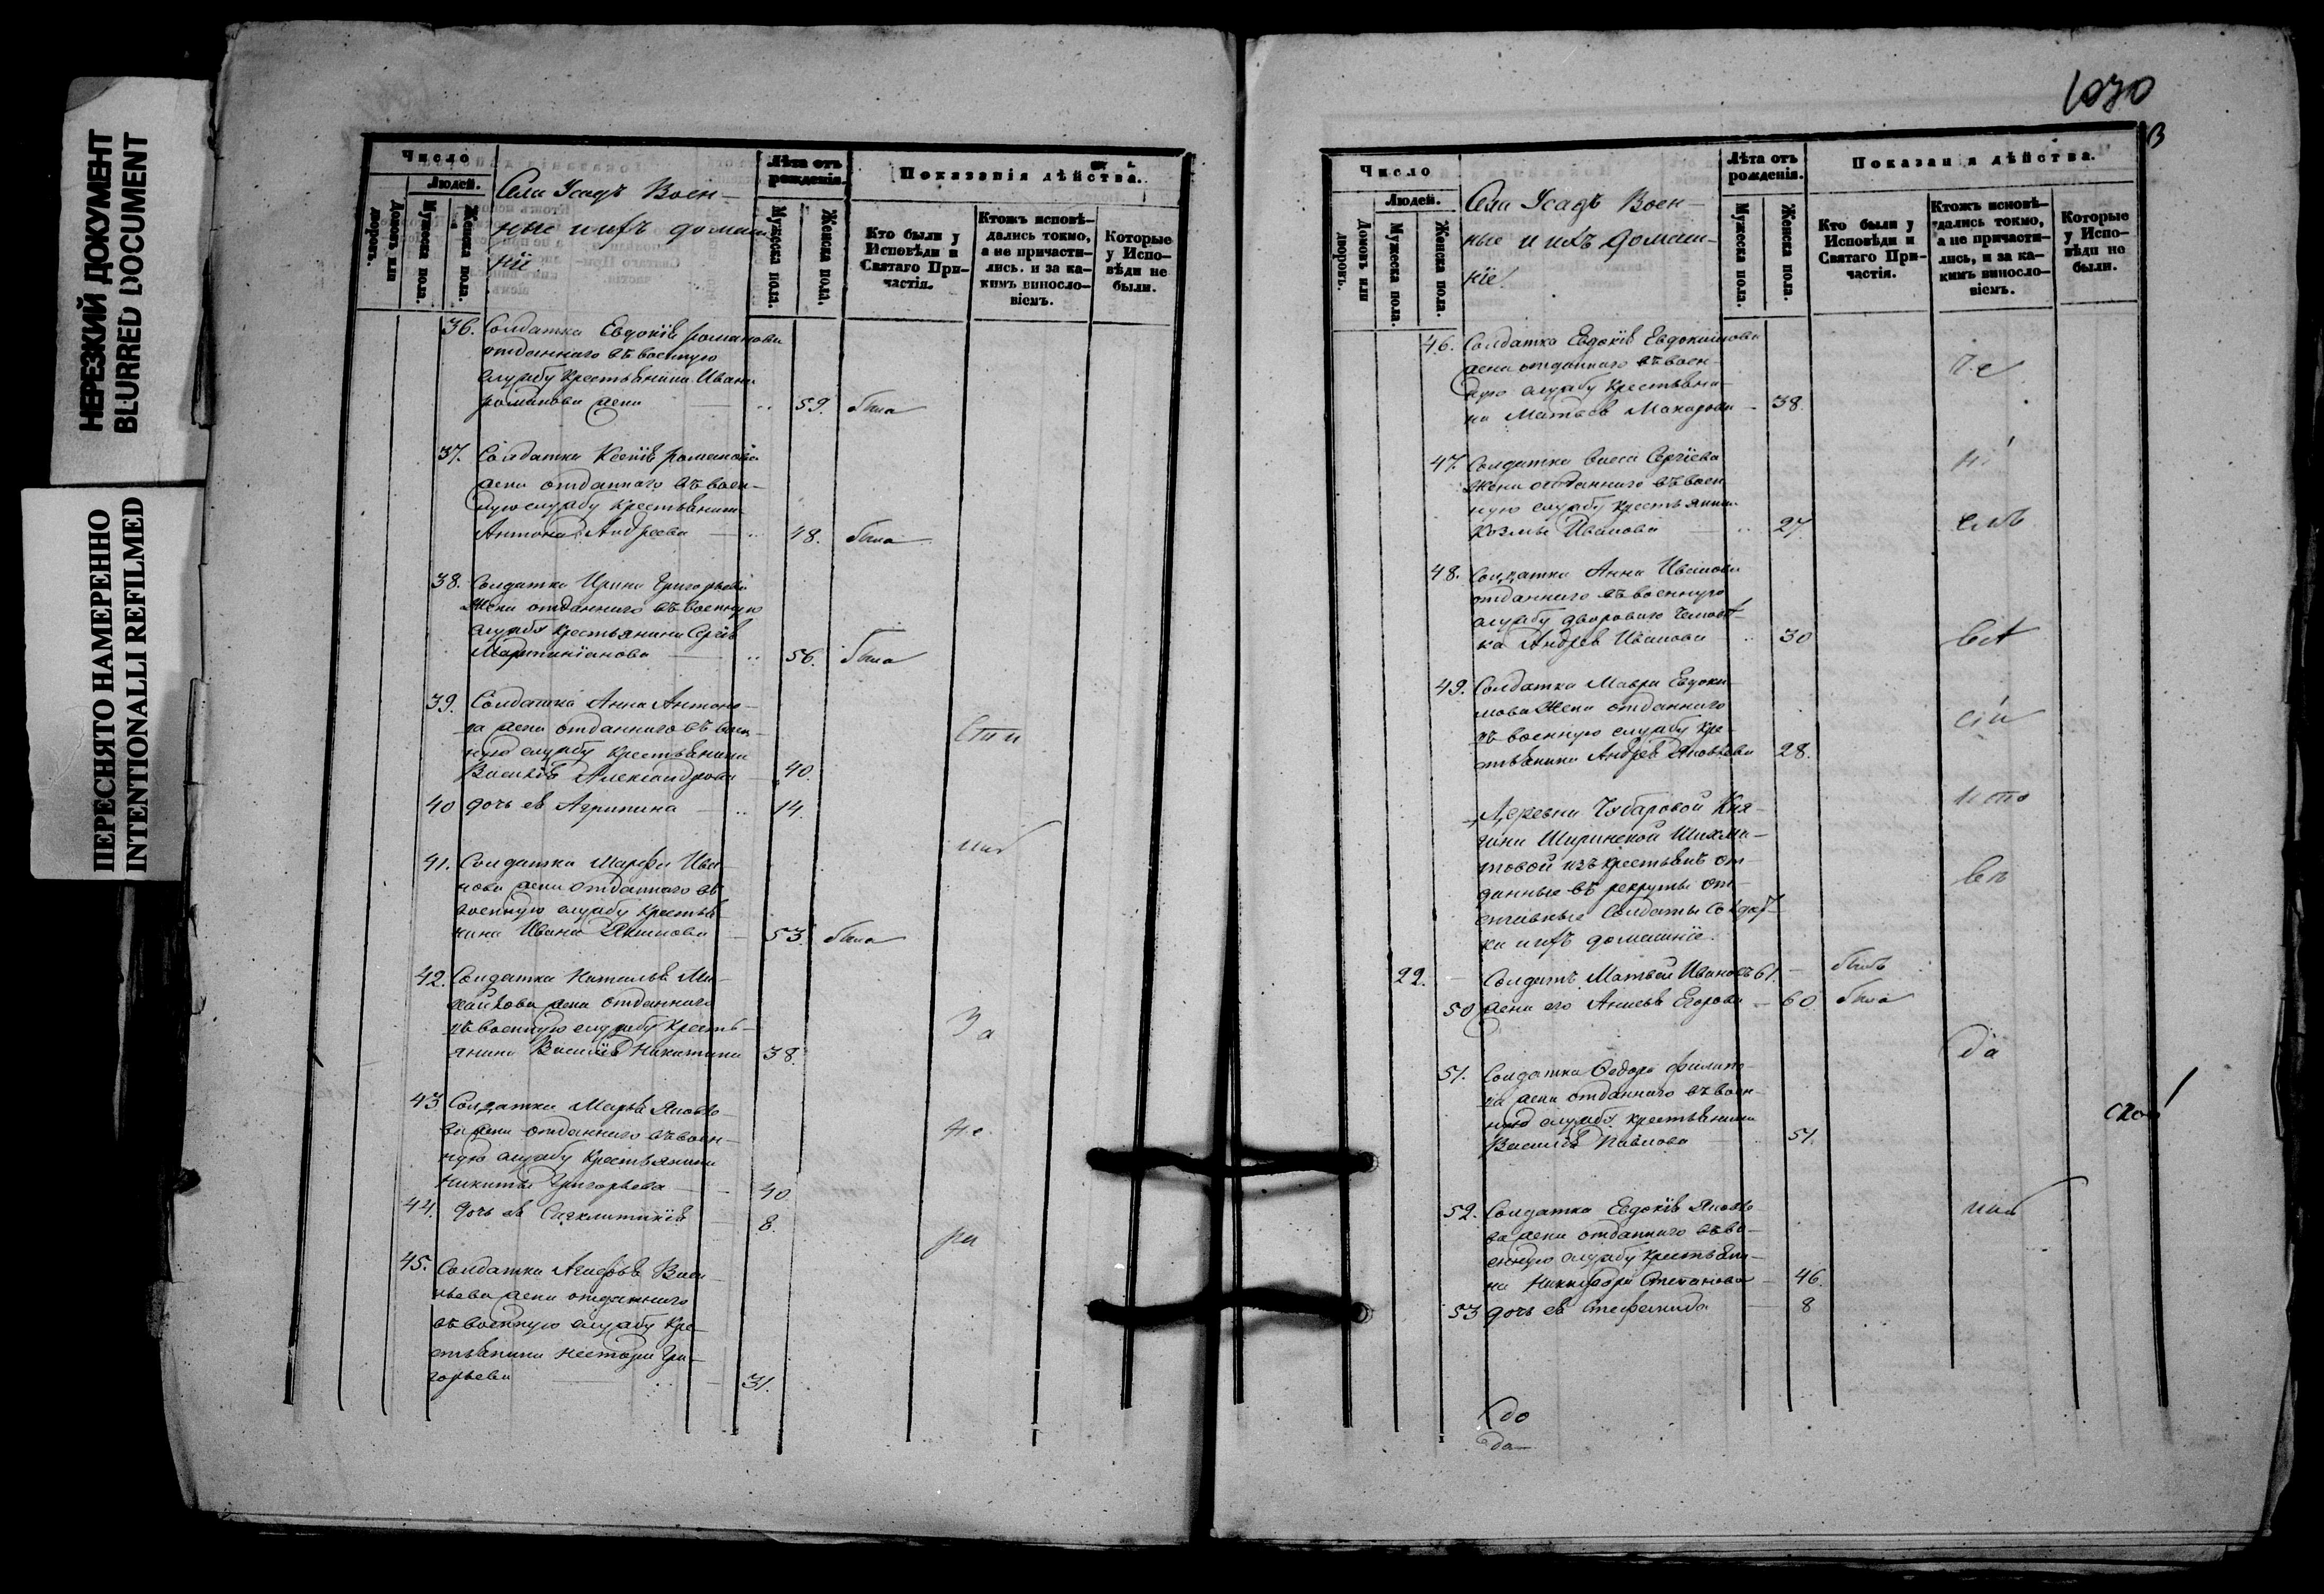 НЕРЕЗКИЙ ДОКУМЕНТ
BLURRED DOCUMENT
ПЕРЕСНЯТО НАМЕРЕННО
INTENTIONALLI REFILMED
Число
Людей.
Домовъ или дворовъ.
Мужеска пола.
Женска пола.
Села Усадъ Воен-
ные и ихъ домаш-
нiе.
Лѣта отъ рожденiя.
Мужеска пола.
Женска пола.
Показанiя дѣйства.
Кто были у Исповѣди и Святаго При-частiя.
Ктожъ исповѣ-дались токмо, а не причасти-лись. и за ка-кимъ винослo-вiемъ.
Которые у Испо-вѣди не были.
36. Солдатка Евдокiя Романова
отданнаго въ военную
службу крестьянина Ивана
Романова жена 59. была
37. Солдатка Ксенiя Романова
жена отданнаго въ воен-
ную службу крестьянина
Антона Андреева 48. была
38. Солдатка Ирина Григорьева
жена отданнаго въ военную
службу крестьянина Сергѣя
Мартинiанова 56. была
39. Солдатка Анна Антоно-
ва жена отданнаго въ воен-
ную службу крестьянина
Василiя Александрова 40.
40 дочь ея Агрипина 14.
41. Солдатка Марфа Ива-
нова жена отданнаго въ
военную службу крестья-
нина Ивана Якимова 53. была
42. Солдатка Наталья Ми-
хайлова жена отданнаго
въ военную службу кресть-
янина Василiя Никитина 38.
За
43 Солдатка Марья Яковле-
ва жена отданнаго въ воен-
ную службу крестьянина
Никиты Григорьева 40
не
44. дочь ея Синклитикiя 8.
45. Солдатка Агафья Васи-
льева жена отданнаго
въ военную службу кре-
стьянина Нестора Гри-
горьева 31.
1030
Число
Людей.
Домовъ или дворовъ.
Мужеска пола.
Женска пола.
Села Усадъ Воен-
ные и ихъ домаш-
нiе.
Лѣта отъ рожденiя.
Мужеска пола.
Женска пола.
Показанiя дѣйства.
Кто были у Исповѣди и Святаго При-частiя.
Ктожъ исповѣ-дались токмо, а не причасти-лись, и за ка-кимъ винослo-вiемъ.
Которые у Испо-вѣди не были.
46. Солдатка Евдокiя Евдокимова
жена отданнаго въ воен-
ную службу крестьяни-
на Матвея Макарова 38.
47. Солдатка Сергiева
жена отданнаго въ воен
ную службу крестьянина
Козмы Иванова 27.
48. Солдатка Анна Иванова
отданнаго въ военную
службу двороваго человѣ-
ка Андрея Иванова 30
49. Солдатка Мавра Евдоки-
мова жена отданнаго
въ военную службу кре-
стьянина Андрея Яковлева 28.
Деревни Чубаровой Кня-
гини Ширинской Шихма-
товой изъ крестьянъ от-
данные въ рекруты от-
ставные Солдаты Солдат-
ки и ихъ домашнiе.
22. Солдатъ Матвей Ивановъ 61. былъ
50 жена его Анисья Егорова 60. была
51. Солдатка Федора Филипо-
ва жена отданнаго въ воен-
ную службу крестьянина
Василiя Павлова 51.
52. Солдатка Евдокiя Яковле-
ва жена отданнаго въ во-
енную службу крестьяни-
на Никифора Степанова 46.
53 дочь ея Стефанида 8